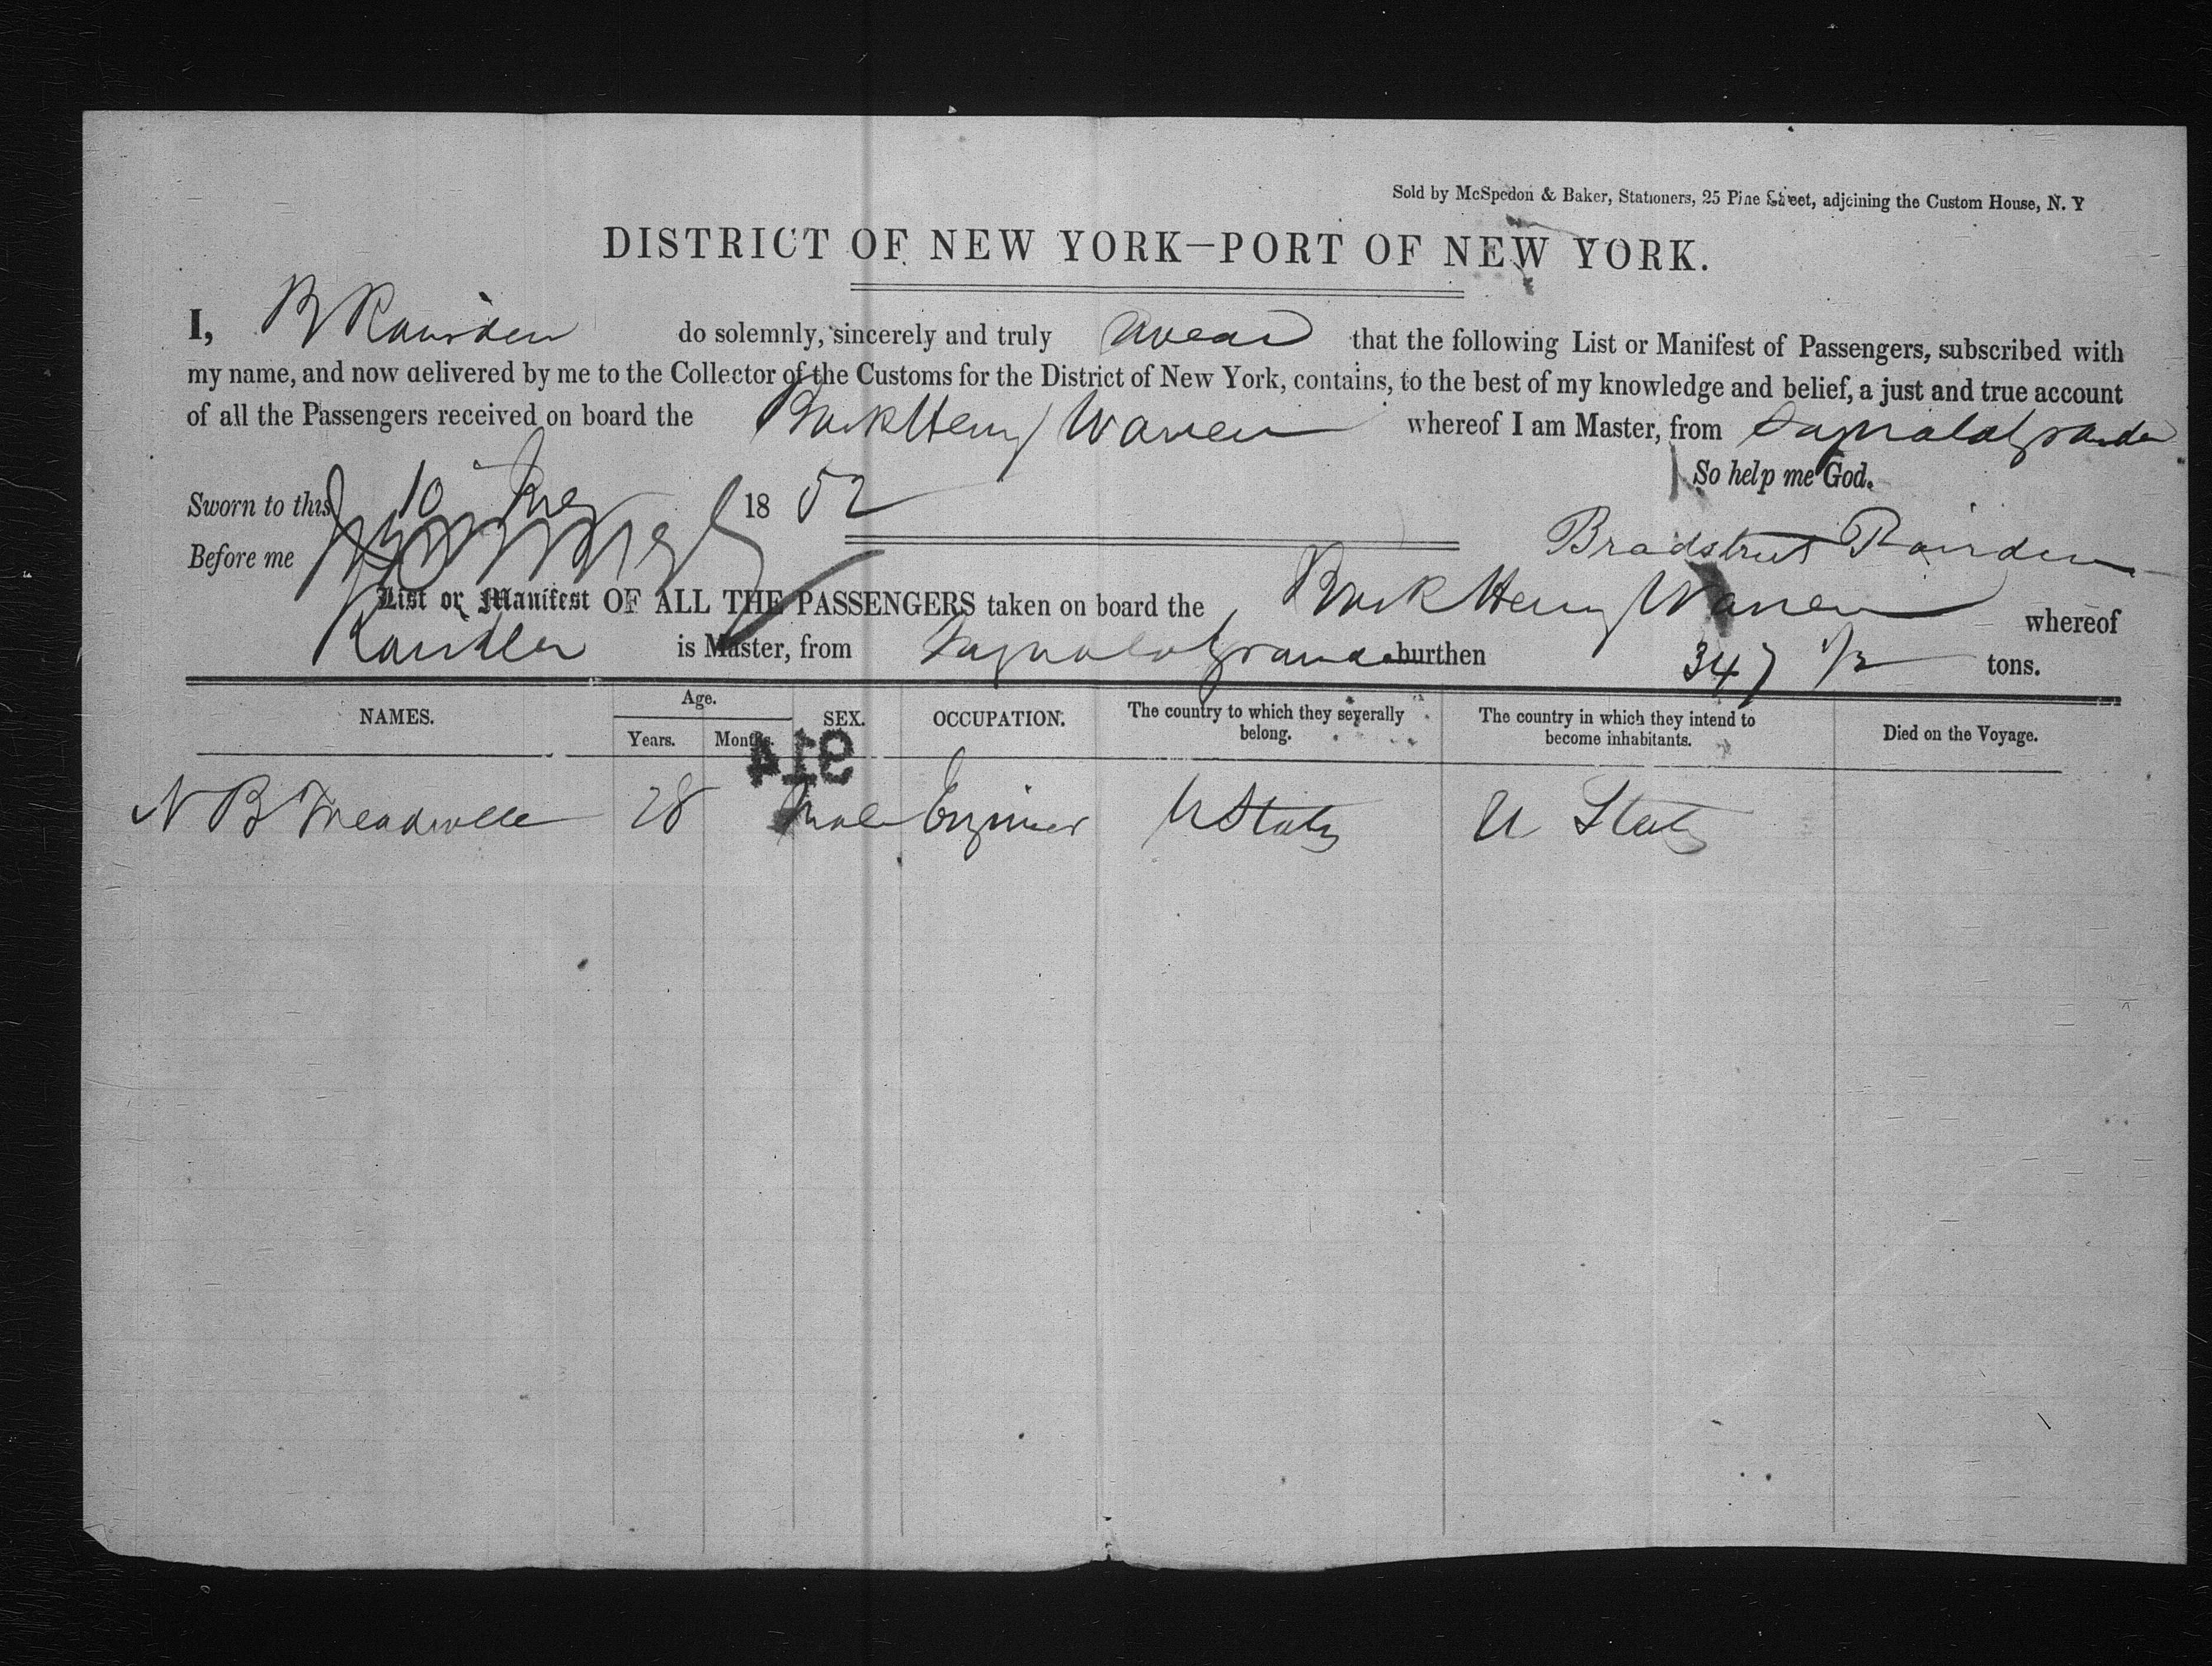 Sold by McSpedon & Baker, Stationers, 25 Pine Street, adjoining the Custom House, N. Y
DISTRICT OF NEW YORK—PORT OF NEW YORK.
I, B Rairden do solemnly, sincerely and truly swear that the following List or Manifest of Passengers, subscribed with
my name, and now delivered by me to the Collector of the Customs for the District of New York, contains, to the best of my knowledge and belief, a just and true account
of all the Passengers received on board the Bark Henry Warren whereof I am Master, from Sagua la Grande
So help me God.
Sworn to this 10 1852
Before me
Bradstreet Rairden
List or Manifest OF ALL THE PASSENGERS taken on board the Bark Henry Warren whereof
Rairden is Master, from Sagua la Grande burthen 347 1/2 tons.
NAMES. Age. SEX. OCCUPATION. The country to which they severally belong. The country in which they intend to become inhabitants. Died on the Voyage.
Years. Months.
914
N B Treadwell 28 Male Engineer U States U States